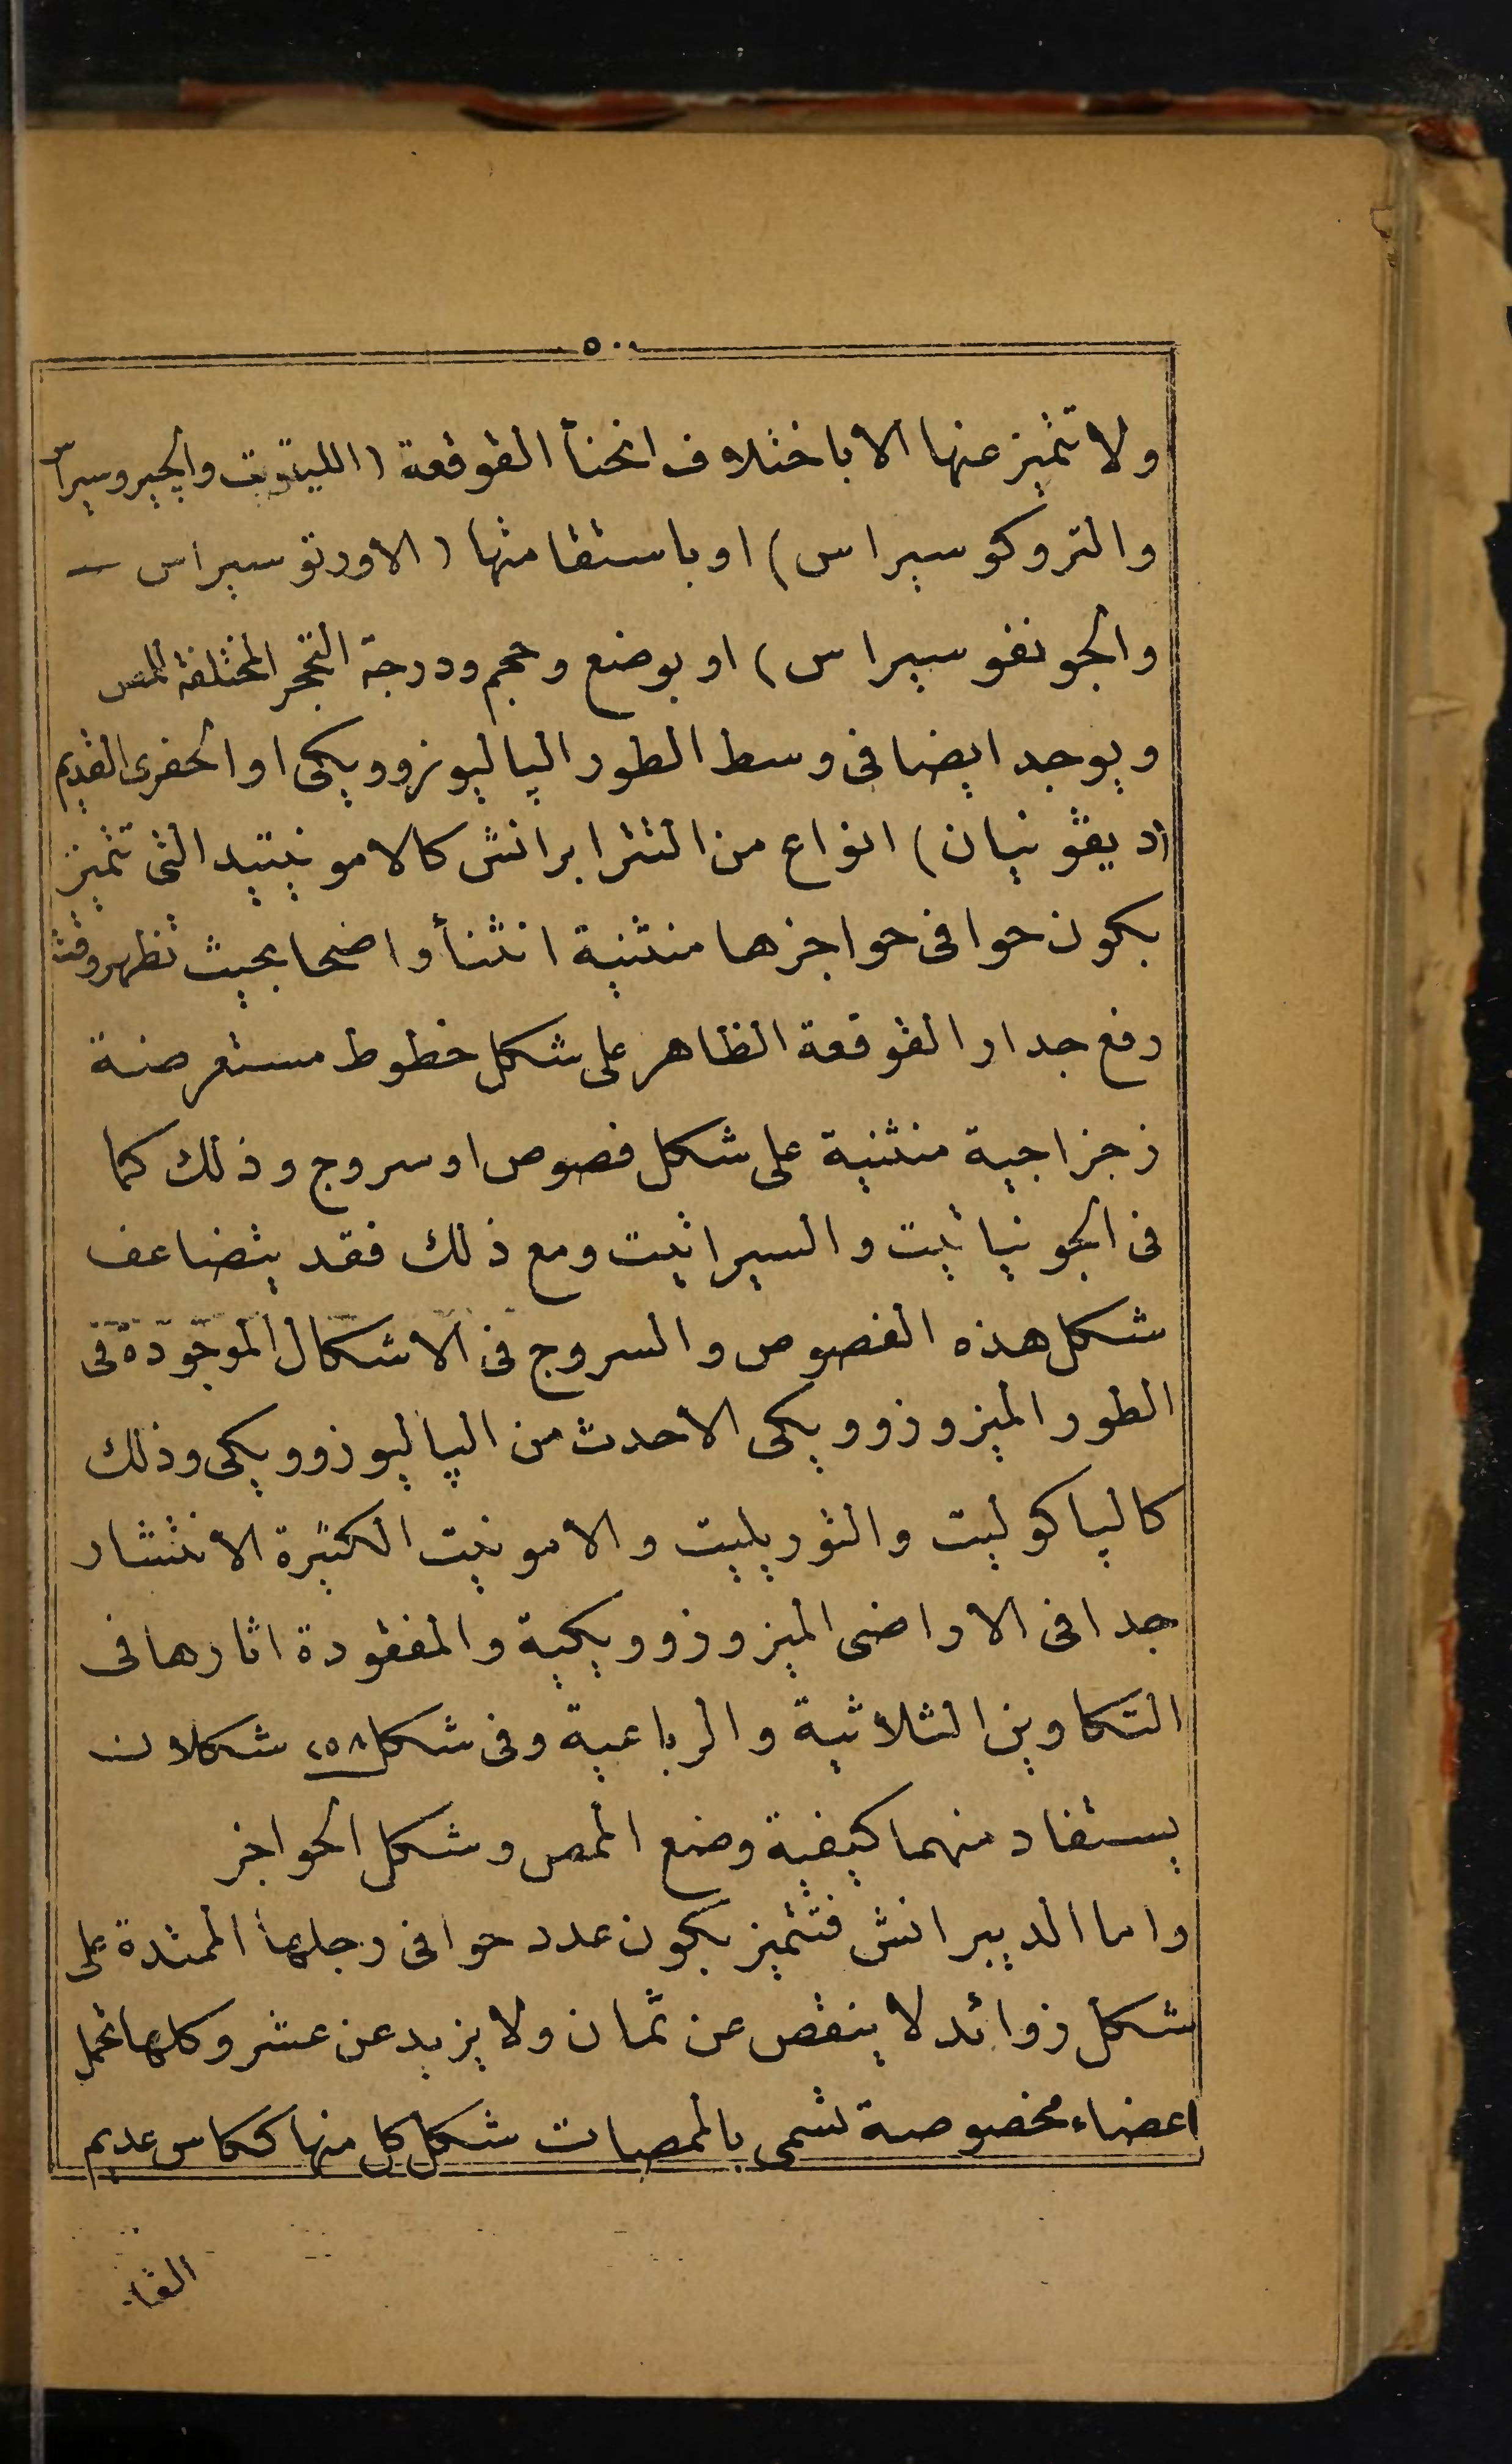 ٥٠٠
ولا تتميز عنها الا باختلاف انحنأ القوقعة (الليتويت والجيروسيراس
والتروكوسيراس) او باستقامتها (الاورتوسيراس —
والجونفوسيراس) او بوضع وحجم ودرجة التحجر المختلفة للمص
ويوجد ايضا فى وسط الطور الپاليوزوويكى او الحفرى القديم
(ديڤونيان) انواع من التترابرانش كالامونيتيد التى تتميز
بكون حوافى حواجزها منثنية انثنأ واضحا بحيث تظهر وقت
رفع جدار القوقعة الظاهر على شكل خطوط مستعرضة
زجزاجية منثنية على شكل فصوص او سروج وذلك كما
فى الجونياتيت والسيراتيت ومع ذلك فقد يتضاعف
شكل هذه الفصوص والسروج فى الاشكال الموجودة فى
الطور الميزوزوويكى الاحدث من الپاليوزوويكى وذلك
كالپاكوليت والتوريليت والامونيت الكثيرة الانتشار
جدا فى الاراضى الميزوزوويكية والمفقودة اثارها فى
التكاوين الثلاثية والرباعية وفى شكل ٢٥٨ شكلان
يستفاد منهما كيفية وضع الممص وشكل الحواجز
واما الديبرانش فتتميز بكون عدد حوافى رجلها الممتدة على
شكل زوائد لا ينقص عن ثمان ولا يزيد عن عشر وكلها تحمل
اعضاء مخصوصة تسمى بالممصات شكل كل منها ككاس عديم
القا